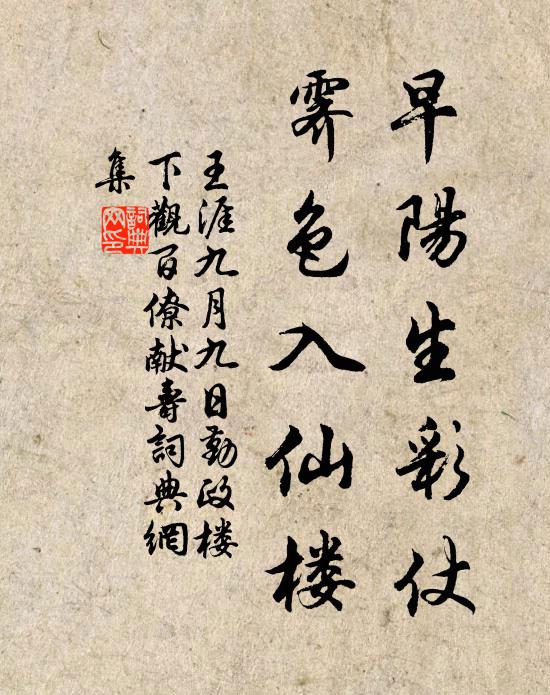 早陽生彩仗
霽色入仙楼
王涯九月九日勤政楼
下觀百僚献壽詞典網
集
詞典网印